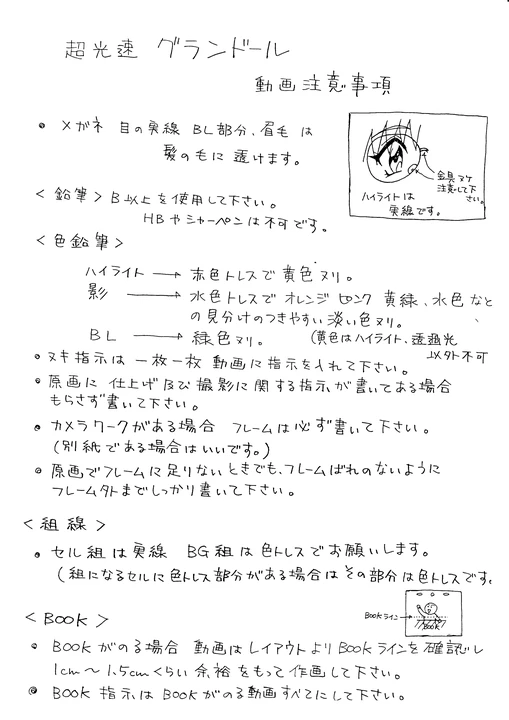 超光速 グランドール
動画注意事項
• メガネ 目の実線 BL部分、眉毛 は
髪の毛に 透けます。
金具ヌケ
注意して下
さい。
ハイライトは
実線です。
<鉛筆> B以上を使用して下さい。
HBやシャーペンは不可です。
<色鉛筆>
ハイライト → 赤色トレスで 黄色ヌリ。
影 → 水色トレスで オレンジ ピンク 黄緑、水色 など
の見分けのつきやすい 淡い色ヌリ。
BL → 緑色ヌリ。 (黄色はハイライト、透過光
以外不可
• ヌキ指示は 一枚一枚 動画に指示を入れて下さい。
• 原画に 仕上げ及び撮影に関する指示が書いてある場合
もらさず書いて下さい。
• カメラワークがある場合 フレームは必ず書いて下さい。
(別紙である場合はいいです。)
• 原画でフレームに足りないときでも、フレームばれのないように
フレーム外までしっかり書いて下さい。
<組線>
• セル組は実線 BG組は色トレスでお願いします。
(組になるセルに色トレス部分がある場合はその部分は色トレスです。
BOOKライン
BOOK
<BOOK>
• BOOKがのる場合 動画はレイアウトよりBOOKラインを確認し
1cm~1.5cmくらい余裕をもって作画して下さい。
• BOOK 指示はBOOKがのる動画すべてにして下さい。